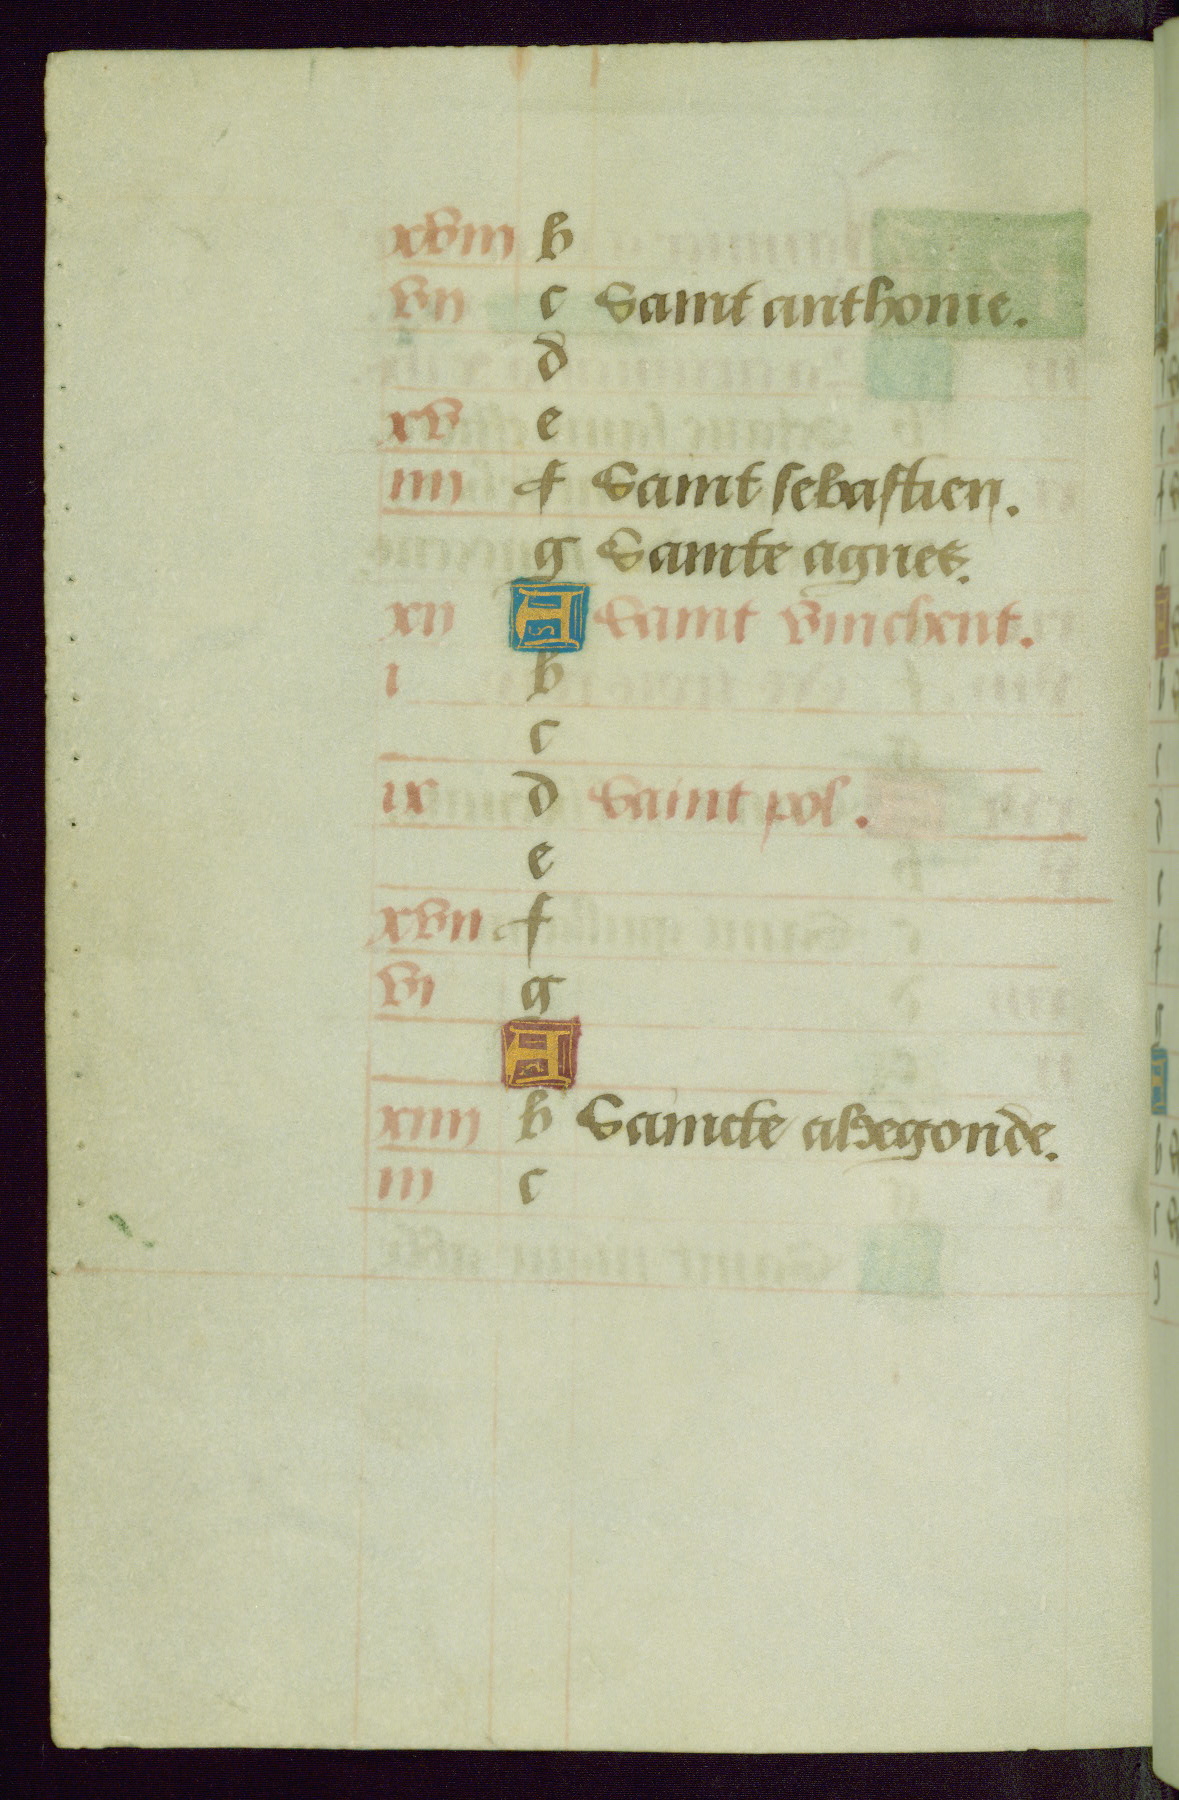 xviii b
vii c Saint anthonie.
d
xv e
iiii f Saint sebastien.
g Sainte agnes.
xii A Saint vinchent.
i b
c
ix d Saint pol.
e
xvii f
vi g
A
xiiii b Saincte aldegonde.
iii c